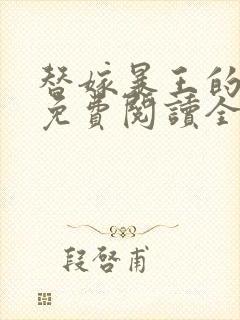 替嫁暴王的
免費閱讀全
段啓甫